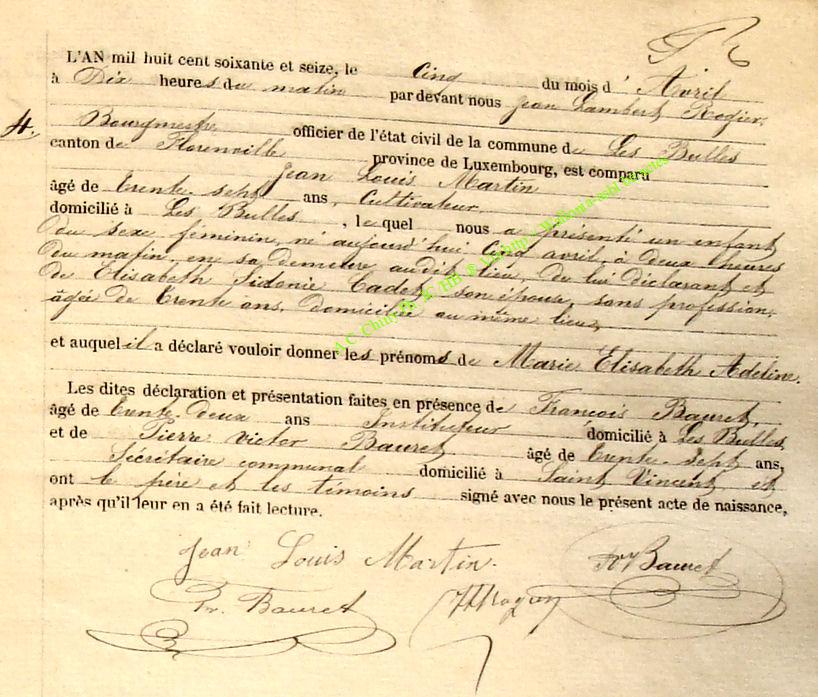 L'AN mil huit cent soixante et seize, le Cinq du mois d'Avril
à Dix heures du matin par devant nous Jean Lambert Rogier,
4. Bourgmestre officier de l'état civil de la commune de Les Bulles
canton de Florenville province de Luxembourg, est comparu
Jean Louis Martin
âgé de trente-sept ans, Cultivateur,
domicilié à Les Bulles, lequel nous a présenté un enfant
du sexe féminin, né aujourd'hui cinq avril, à deux heures
du matin, en sa demeure audit lieu, de lui déclarant et
de Elisabeth Sidonie Cadet, son épouse, sans profession,
âgée de trente ans, domiciliée au même lieu,
et auquel il a déclaré vouloir donner les prénoms de Marie Elisabeth Adeline.
Les dites déclaration et présentation faites en présence de François Bauret,
âgé de trente-deux ans Instituteur domicilié à Les Bulles
et de Pierre Victor Bauret âgé de trente-sept ans,
Secrétaire communal domicilié à Saint Vincent et
ont le père et les témoins signé avec nous le présent acte de naissance,
après qu'il leur en a été fait lecture.
Jean Louis Martin. Bauret
Bauret